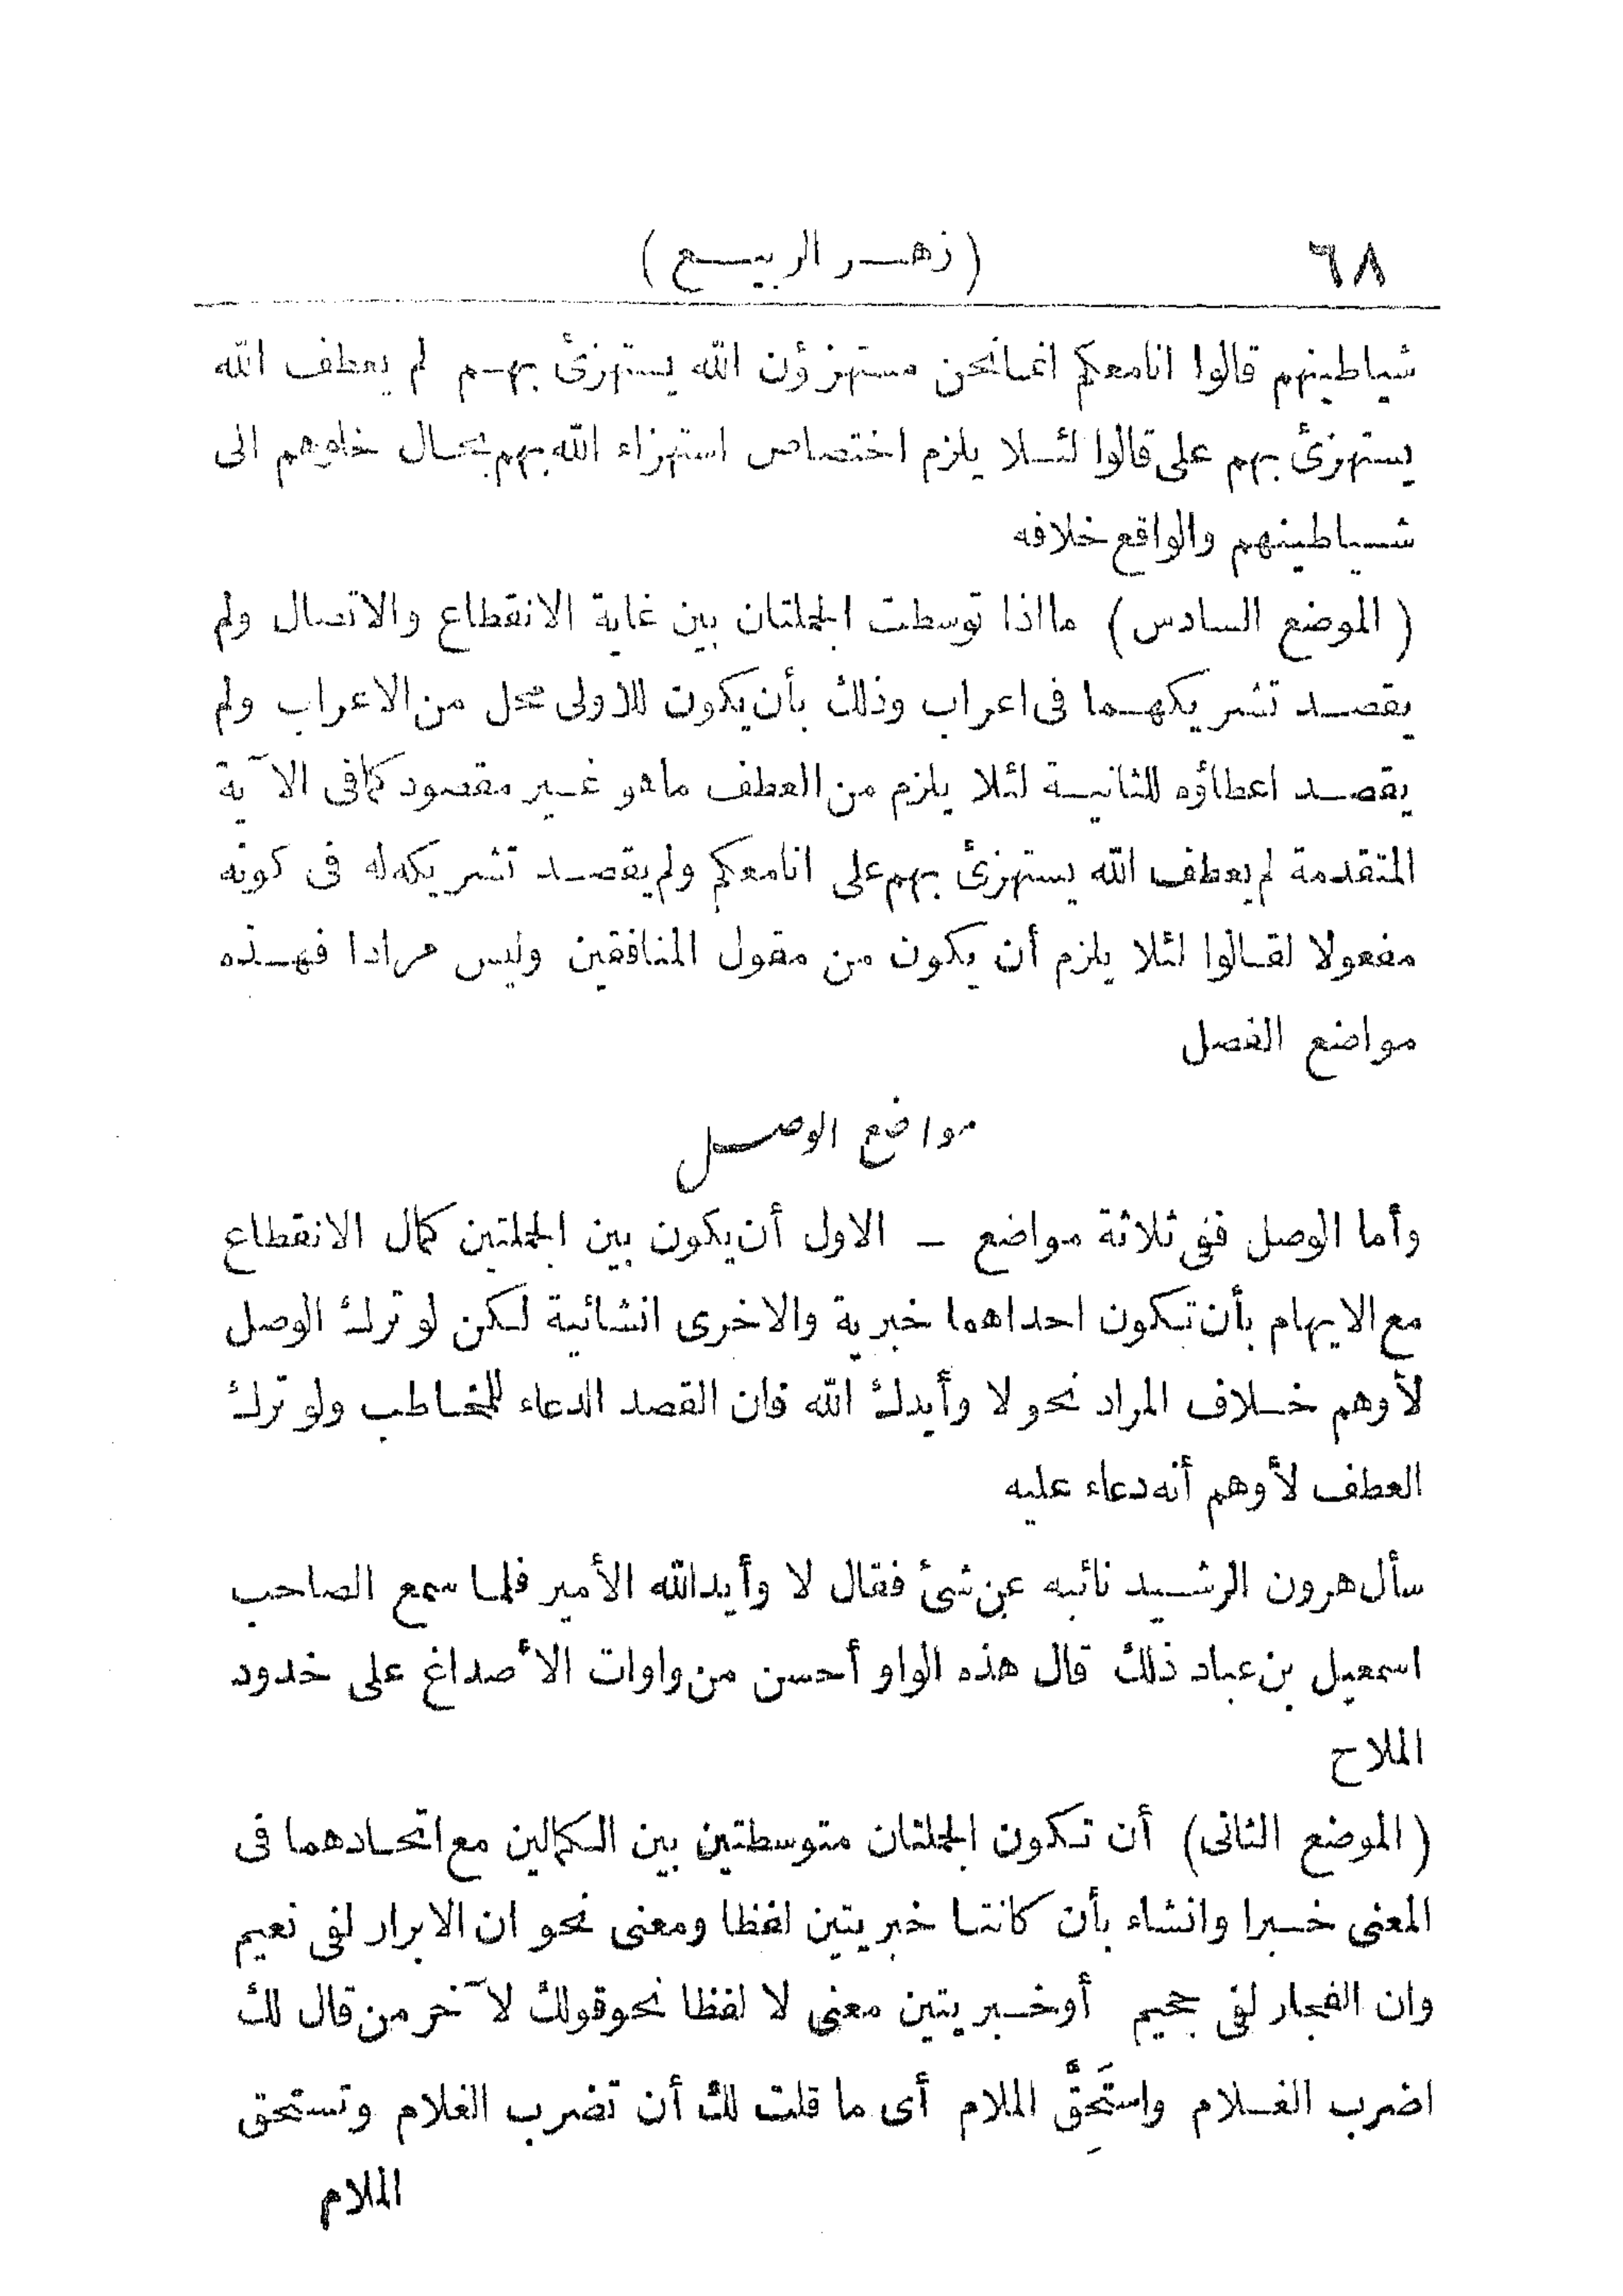 ٦٨
(زهر الربيع)
شياطينهم قالوا انا معكم انما نحن مستهزؤن الله يستهزئ بهم لم يعطف الله
يستهزئ بهم على قالوا لئلا يلزم اختصاص استهزاء الله بهم بحال خلوهم الى
شياطينهم والواقع خلافه
(الموضع السادس) ما اذا توسطت الجملتان بين غاية الانقطاع والاتصال ولم
يقصد تشريكهما فى اعراب وذلك بأن يكون للاولى محل من الاعراب ولم
يقصد اعطاؤه للثانية لئلا يلزم من العطف ما هو غير مقصود كما فى الآية
المتقدمة لم يعطف الله يستهزئ بهم على انا معكم ولم يقصد تشريكه له فى كونه
مفعولا لقالوا لئلا يلزم أن يكون من مقول المنافقين وليس مرادا فهذه
مواضع الفصل
مواضع الوصل
وأما الوصل ففى ثلاثة مواضع – الاول أن يكون بين الجملتين كمال الانقطاع
مع الايهام بأن تكون احداهما خبرية والاخرى انشائية لكن لو ترك الوصل
لأوهم خلاف المراد نحو لا وأيدك الله فان القصد الدعاء للمخاطب ولو ترك
العطف لأوهم أنه دعاء عليه
سأل هرون الرشيد نائبه عن شئ فقال لا وأيد الله الأمير فلما سمع الصاحب
اسمعيل بن عباد ذلك قال هذه الواو أحسن من واوات الأصداغ على خدود
الملاح
(الموضع الثانى) أن تكون الجملتان متوسطتين بين الكمالين مع اتحادهما فى
المعنى خبرا وانشاء بأن كانتا خبريتين لفظا ومعنى نحو ان الابرار لفى نعيم
وان الفجار لفى جحيم أو خبريتين معنى لا لفظا نحو قولك لآخر من قال لك
اضرب الغلام واستَحِقَّ الملام أى ما قلت لك أن تضرب الغلام وتستحق
الملام